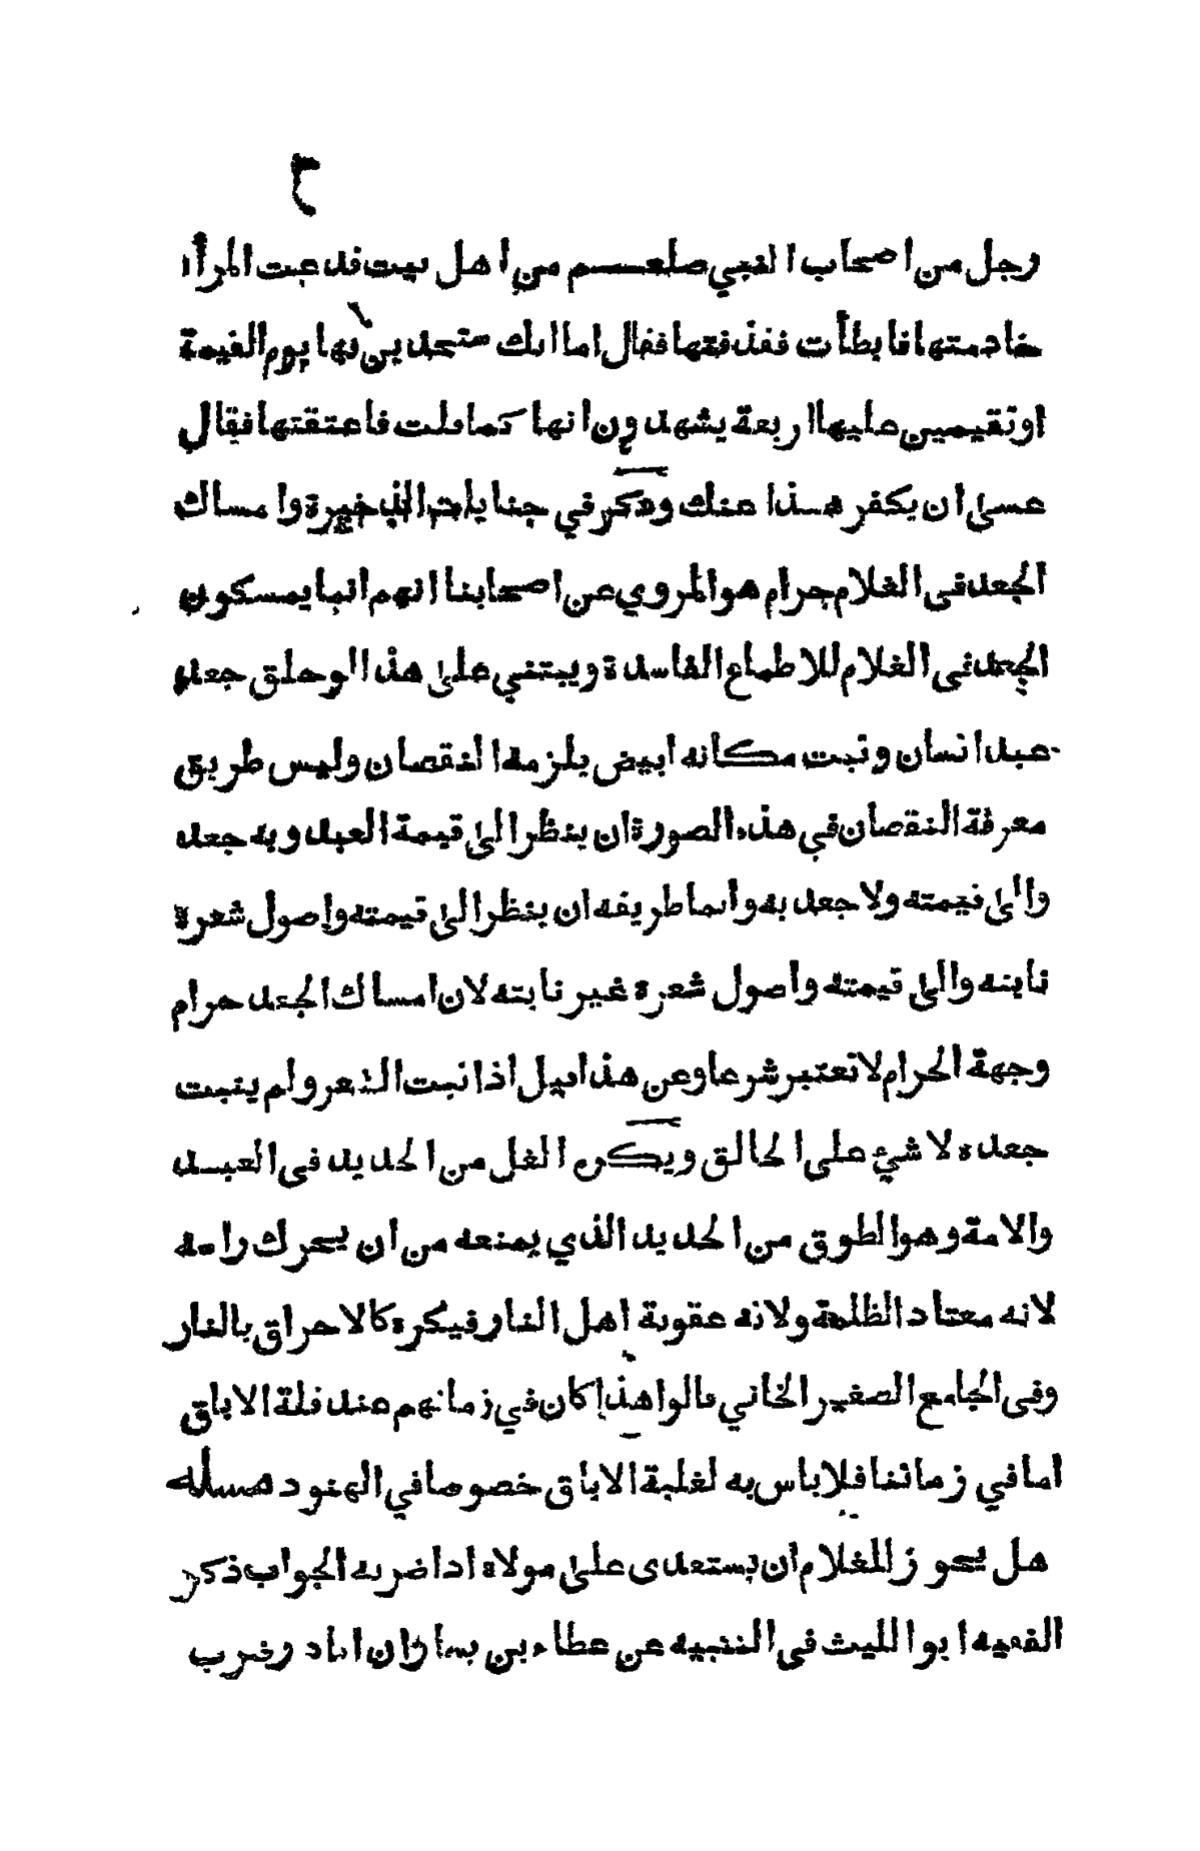 ٣
رجل من اصحاب النبي صلعم من اهل بيت فدعت المرأة
خادمتها فابطأت فقذفتها فقال اما انك ستحدين بها يوم القيمة
او تقيمين عليها اربعة يشهدون انها كما قلت فاعتقتها فقال
عسى ان يكفر هذا عنك وذكر في جنايات الذخيرة وامساك
الجعد في الغلام حرام هو المروي عن اصحابنا انهم انما يمسكون
الجعد في الغلام للاطماع الفاسدة ويبتني على هذا لو حلق جعد
عبد انسان ونبت مكانه ابيض يلزمه النقصان وليس طريق
معرفة النقصان في هذه الصورة ان ينظر الى قيمة العبد وبه جعد
والى قيمته ولا جعد به وانما طريقه ان ينظر الى قيمته واصول شعره
نابته والى قيمته واصول شعره غير نابته لان امساك الجعد حرام
وجهة الحرام لا تعتبر شرعا وعن هذا قيل اذا نبت الشعر ولم ينبت
جعده لا شيء على الحالق ويكره الغل من الحديد في العبد
والامة وهو الطوق من الحديد الذي يمنعه من ان يحرك راسه
لانه معتاد الظلمة ولانه عقوبة اهل النار فيكره كالاحراق بالنار
وفي الجامع الصغير الخاني قالوا هذا كان في زمانهم عند قلة الاباق
اما في زماننا فلا باس به لغلبة الاباق خصوصا في الهنود مسأله
هل يجوز للغلام ان يستعدى على مولاه اذا ضربه الجواب ذكر
الفقيه ابو الليث في التنبيه عن عطاء بن يسار ان اباذر ضرب